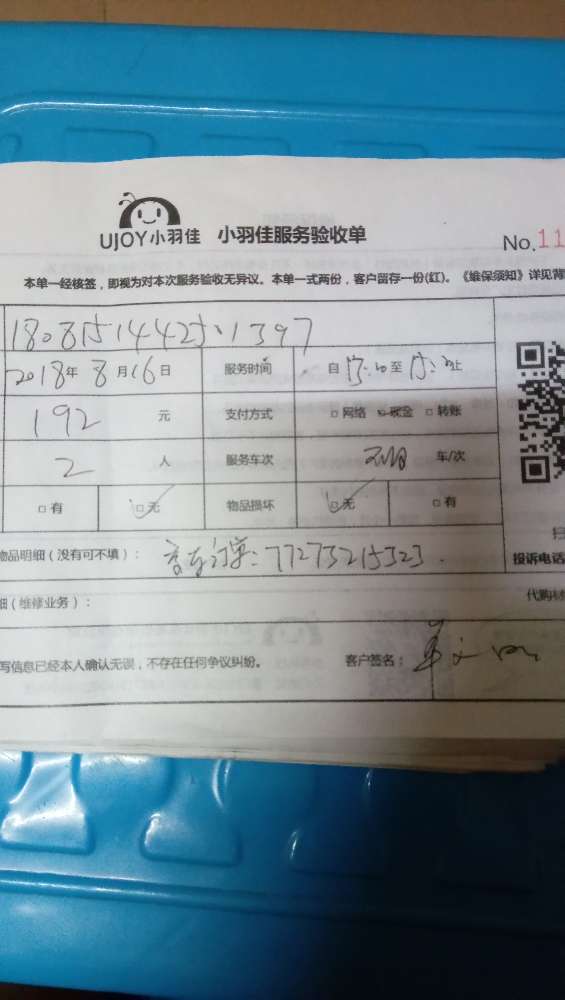 UJOY小羽佳 小羽佳服务验收单 No.11
本单一经核签，即视为对本次服务验收无异议。本单一式两份，客户留存一份(红)。《维保须知》详见背
180815144251397
2018年 8月16日 服务时间 自 13:20 至 15:20 止
192 元 支付方式 □网络 □现金 □转账
2 人 服务车次 车/次
□有 □无 物品损坏 □无 □有
物品明细（没有可不填）： 京东订单:77273215323.
投诉电话
细（维修业务）： 代购材
写信息已经本人确认无误，不存在任何争议纠纷。 客户签名：